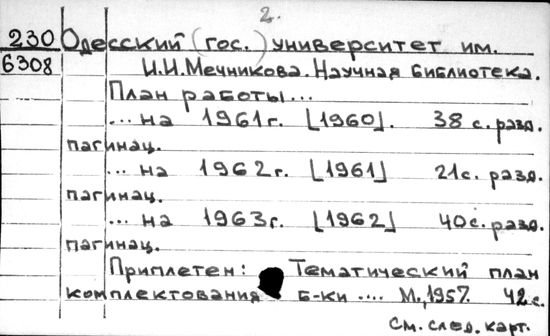 2.
230 Одесский (гос.) университет им.
6308 И.И.Мечникова. Научная библиотека.
План работы...
... на 1961г. [1960]. 38 с. разд.
пагинац.
... на 1962г. [1961] 21с. разд.
пагинац.
... на 1963г. [1962] 40с. разд.
пагинац.
Приплетен: Тематический план
комплектования б-ки .... М., 1957. 42 с.
См. след. карт.